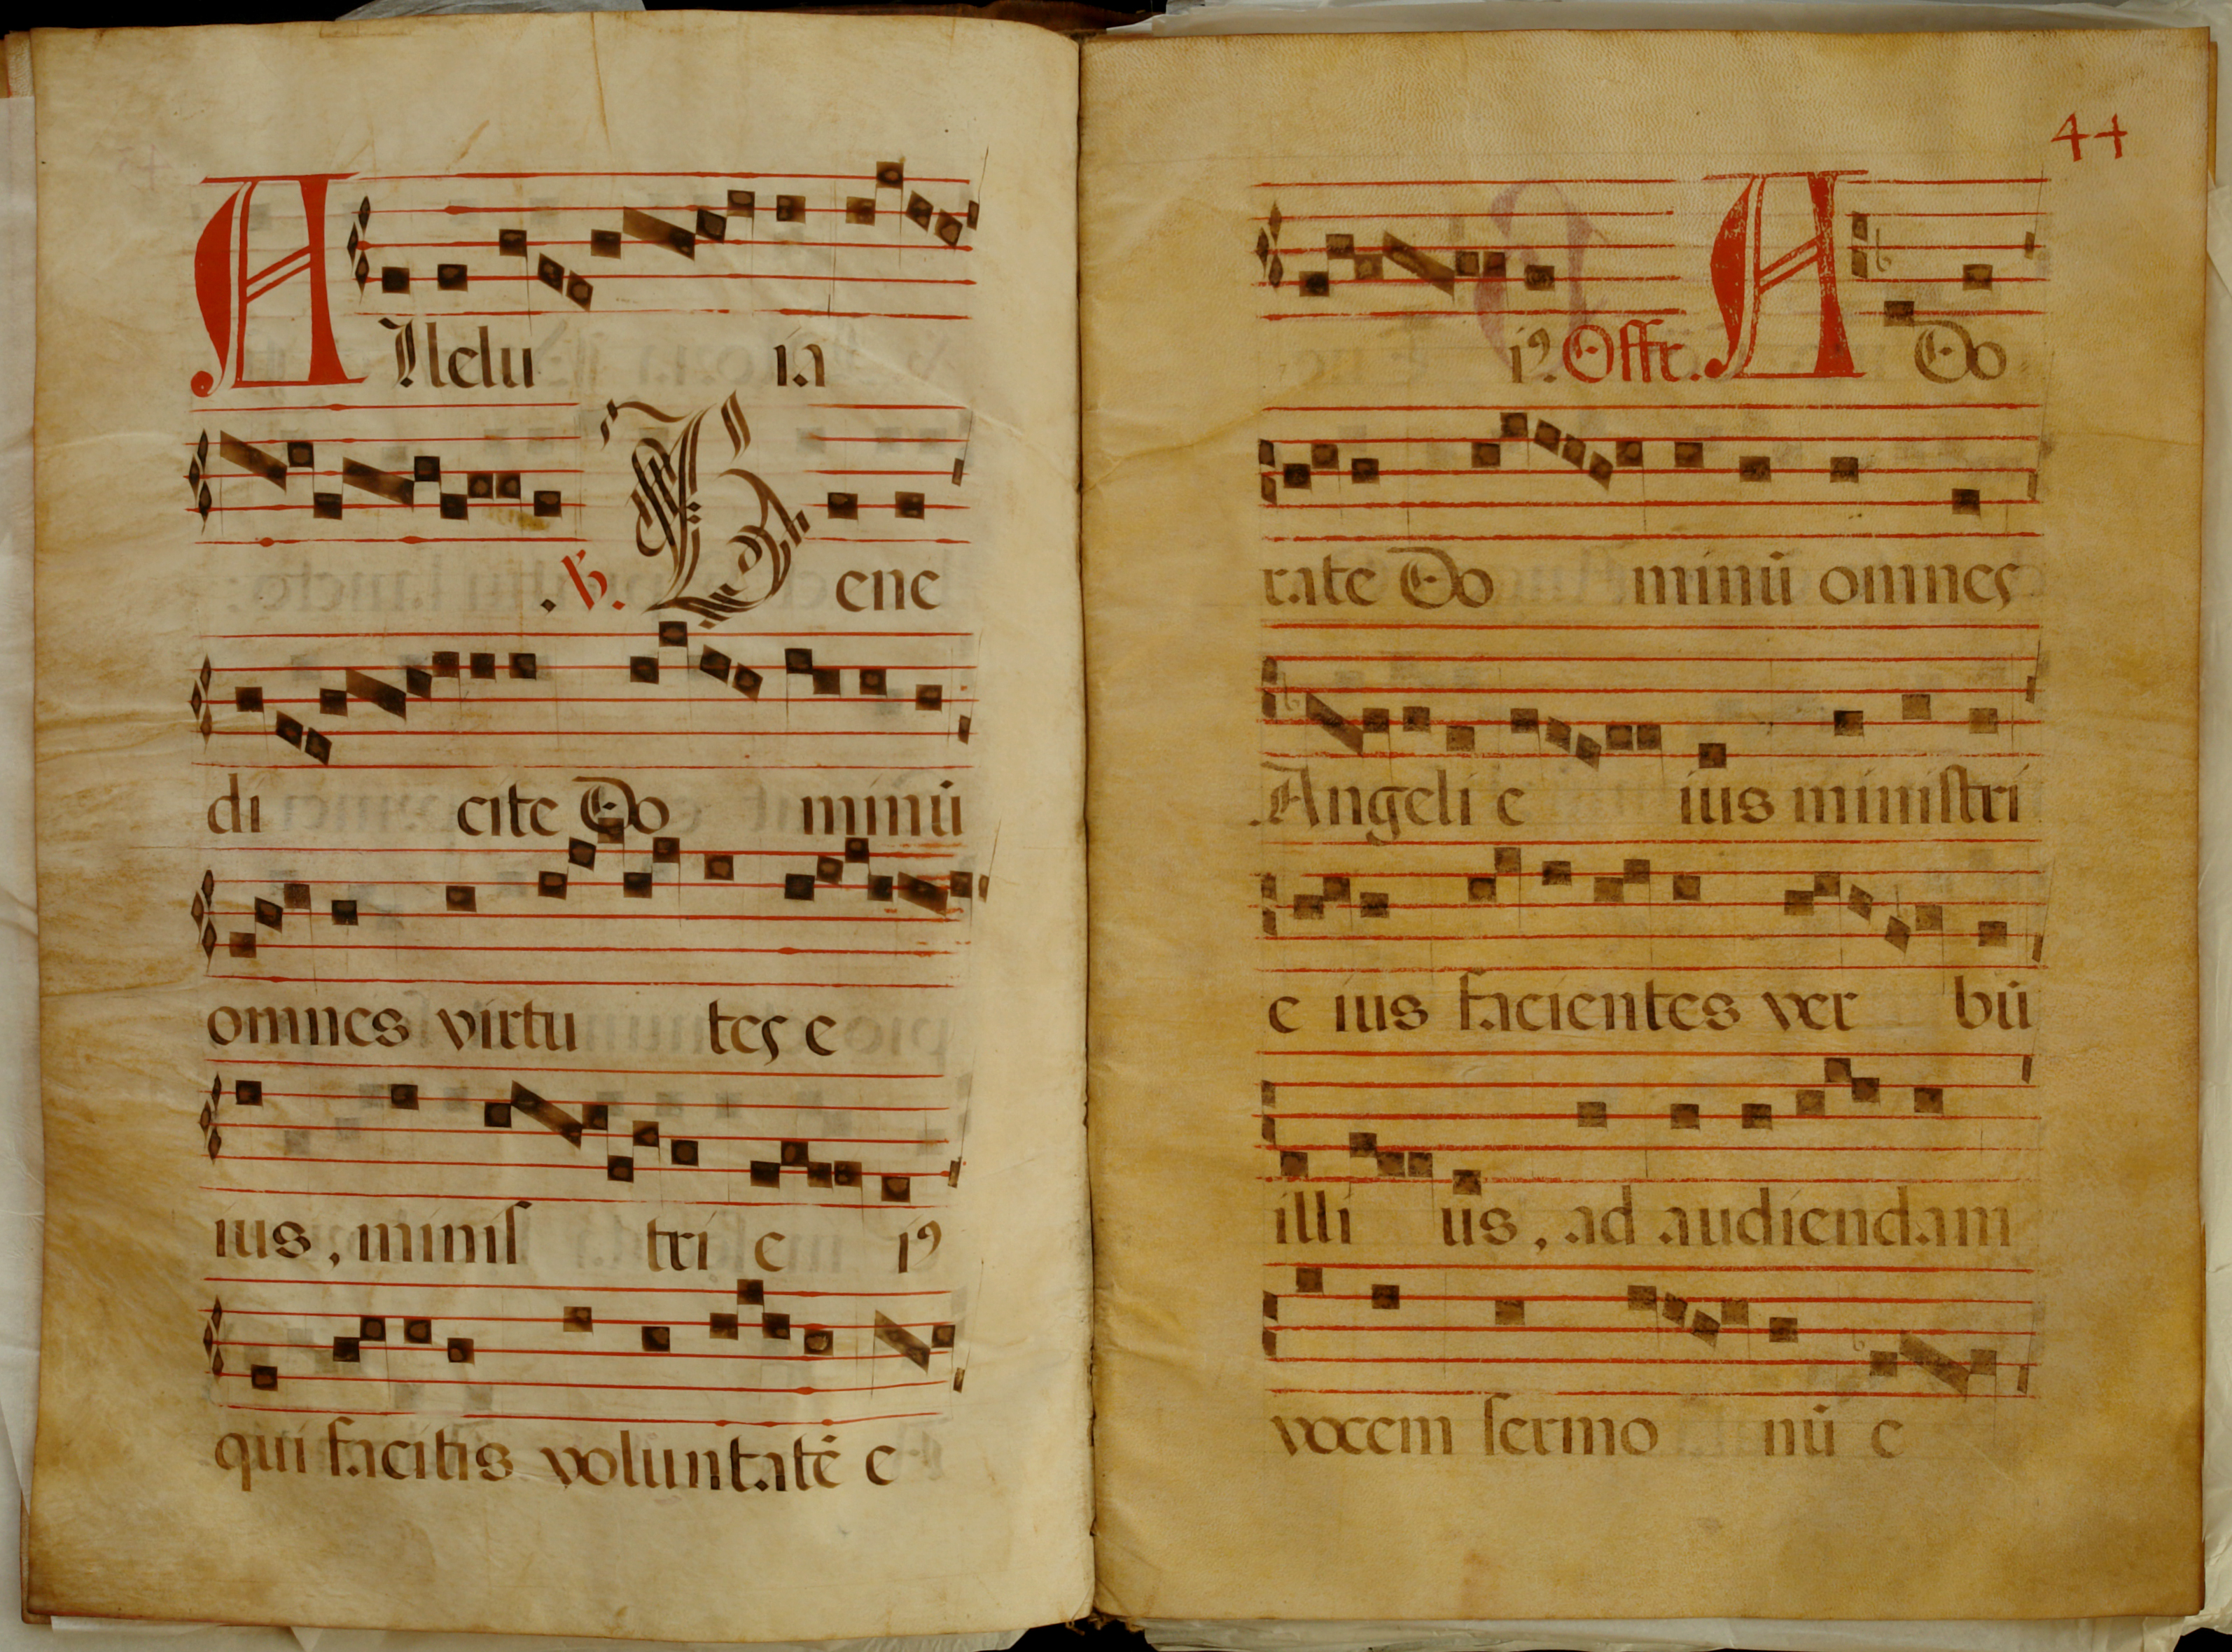 Allelu ia
.℣. Bene
di cite Do minū
omnes virtu tes e
ius, minis tri e iꝰ
qui facitis voluntatē e
44
iꝰ. Offr. A Do
rate Do minū omnes
Angeli e ius ministri
e ius facientes ver bū
illi us, ad audiendam
vocem sermo nū e